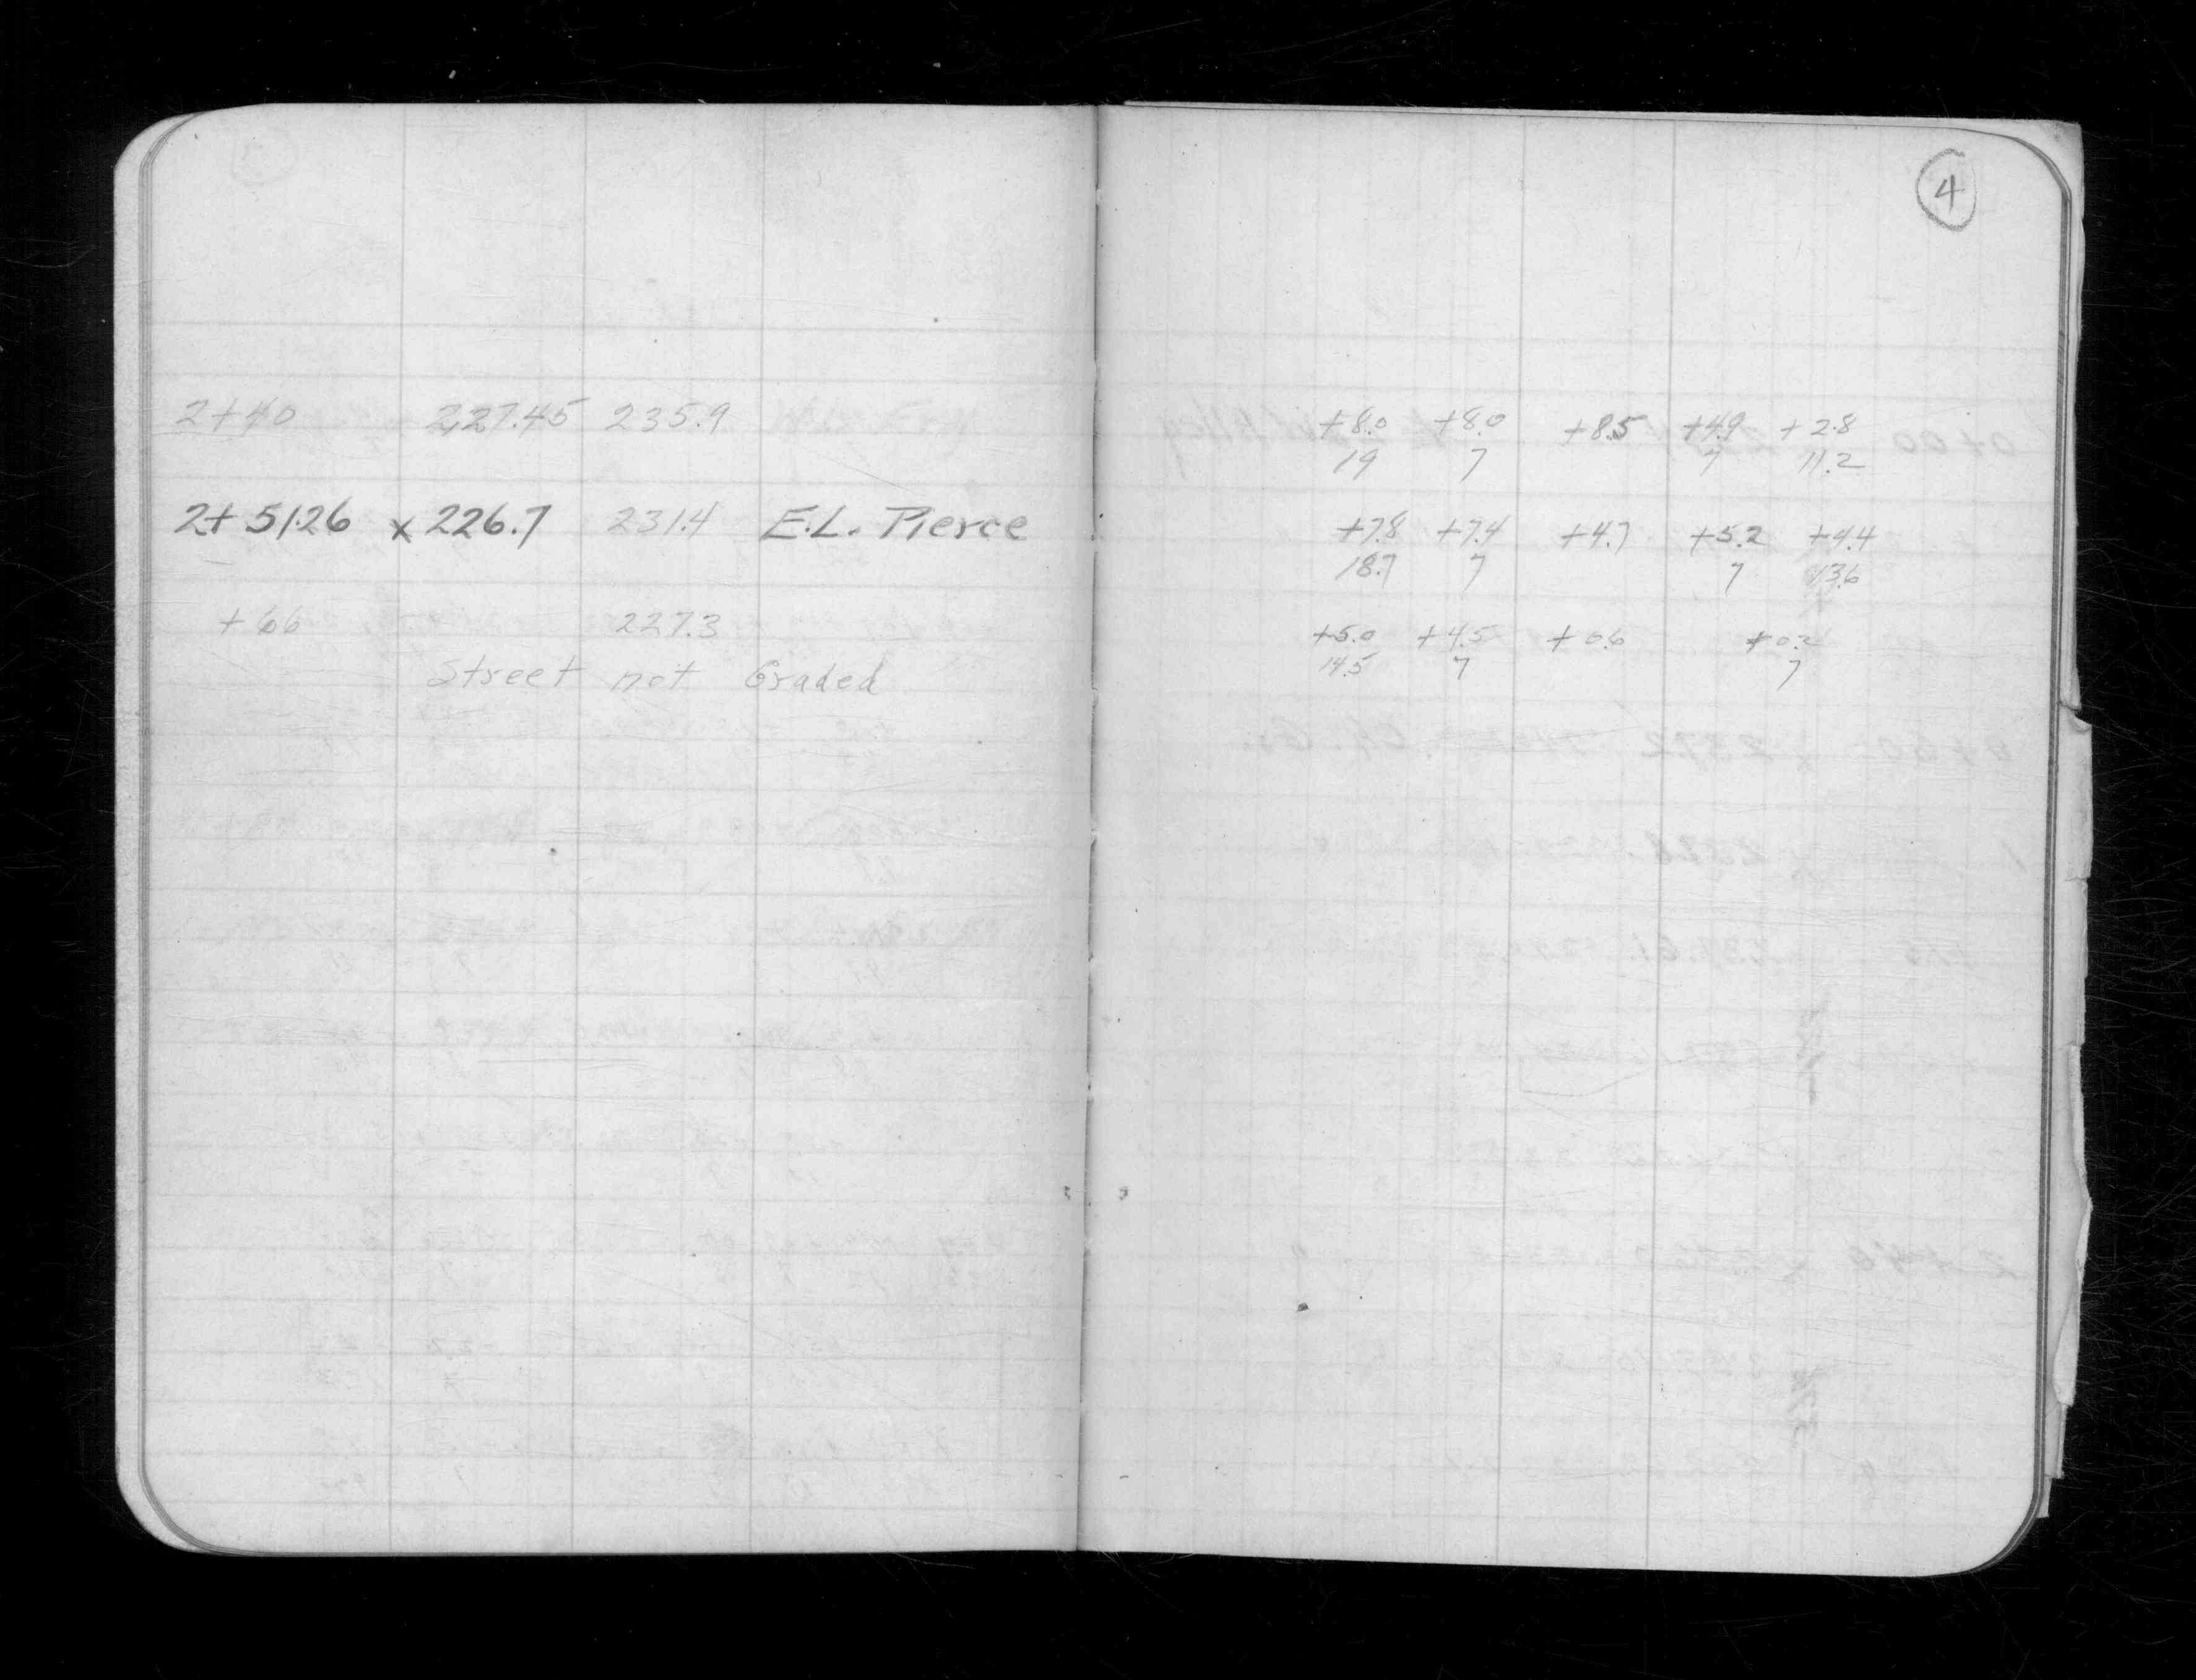 4
2+40 227.45 235.9
2+51.26 x 226.7 231.4 E.L. Pierce
+66 227.3
Street not Graded
+8.0 +8.0 +8.5 +4.9 +2.8
19 7 7 11.2
+7.8 +7.4 +4.7 +5.2 +4.4
18.7 7 7 13.6
+5.0 +4.5 +0.6 +0.2
14.5 7 7